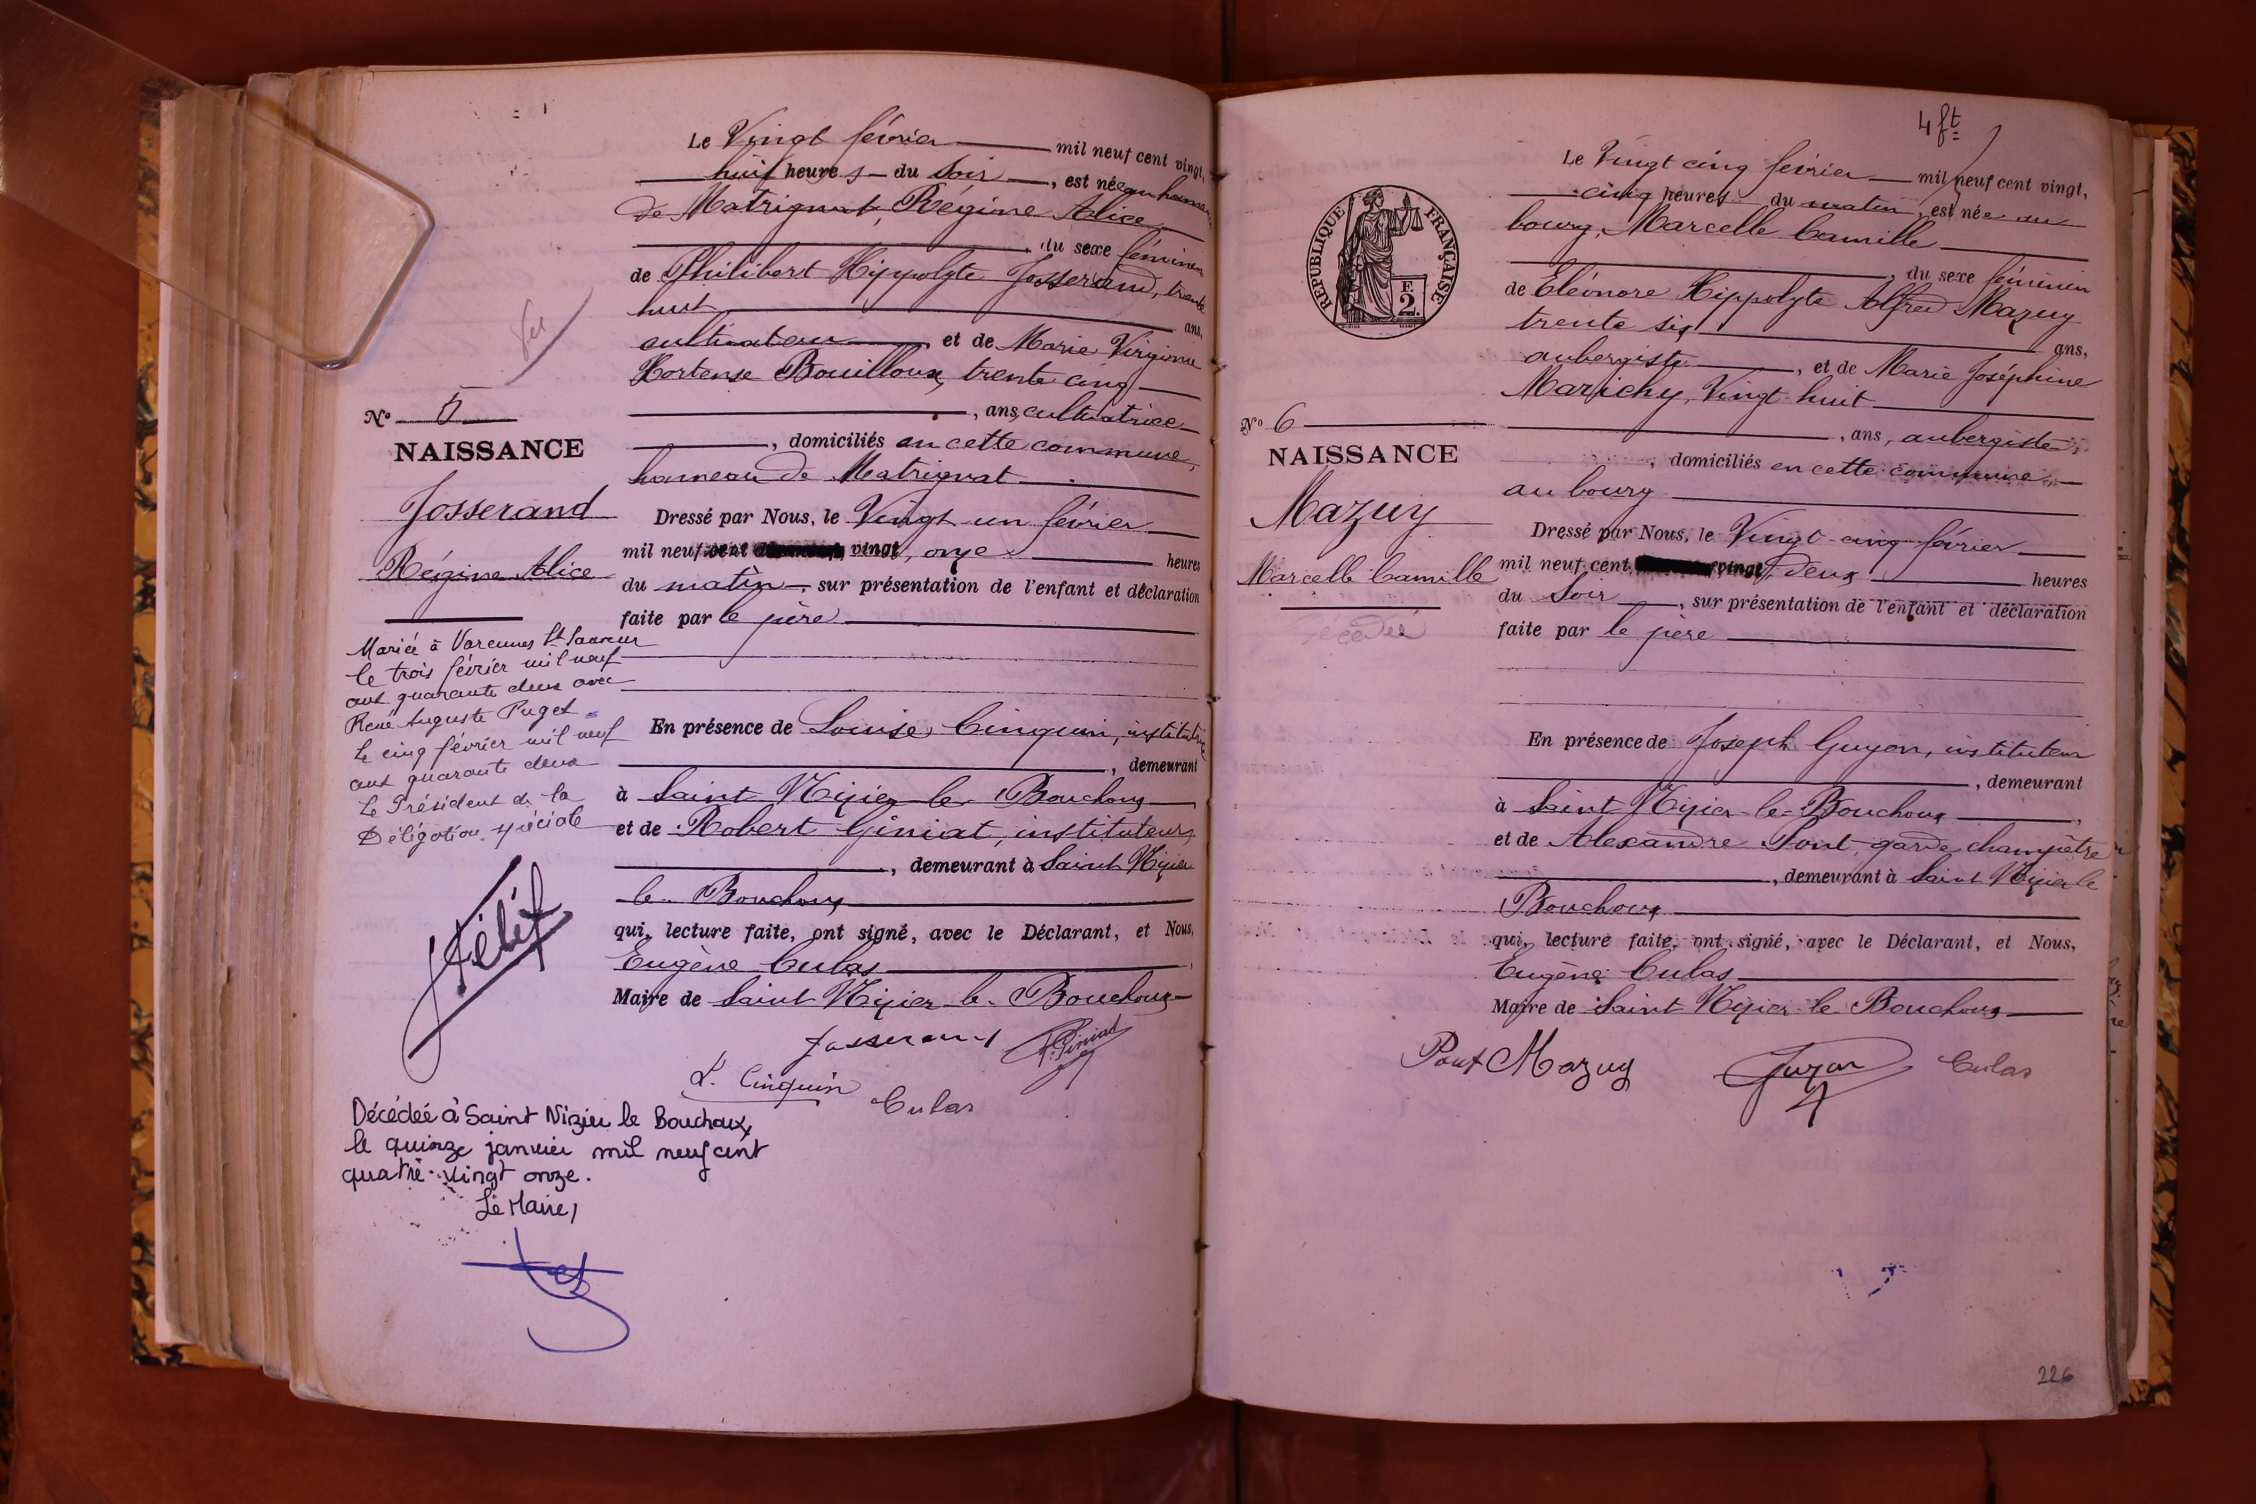 Le Vingt février mil neuf cent vingt,
huit heures du soir, est née au hameau
de Matrignat, Régine Alice
du sexe féminin
de Philibert Hippolyte Josserand, trente
huit ans,
cultivateur et de Marie Virginie
Hortense Bouilloux, trente cinq
, ans, cultivatrice
, domiciliés en cette commune,
hameau de Matrignat
Dressé par Nous, le Vingt un février
mil neuf cent vingt, onze heures
du matin, sur présentation de l'enfant et déclaration
faite par le père
En présence de Louise Cinquin, institutrice
, demeurant
à Saint Nizier le Bouchoux
et de Robert Giniat, instituteur,
, demeurant à Saint Nizier
le Bouchoux
qui, lecture faite, ont signé, avec le Déclarant, et Nous,
Eugène Culas
Maire de Saint Nizier le Bouchoux
Josserand R. Giniat
L. Cinquin Culas
N° 5
NAISSANCE
Josserand
Régine Alice
Mariée à Varennes St Sauveur
le trois février mil neuf
cent quarante deux avec
René Auguste Puget
Le cinq février mil neuf
cent quarante deux
Le Président de la
Délégation spéciale
Décédée à Saint Nizier le Bouchoux
le quinze janvier mil neuf cent
quatre-vingt onze.
Le Maire,
4 ft
Le Vingt cinq février mil neuf cent vingt,
cinq heures du matin, est née au
bourg, Marcelle Camille
, du sexe féminin
de Eléonore Hippolyte Alfred Mazuy
trente six ans,
aubergiste, et de Marie Joséphine
Marichy, Vingt huit
, ans, aubergiste,
, domiciliés en cette commune
au bourg
Dressé par Nous, le Vingt cinq février
mil neuf cent vingt, deux heures
du soir, sur présentation de l'enfant et déclaration
faite par le père
En présence de Joseph Guyon, instituteur
, demeurant
à Saint Nizier le Bouchoux,
et de Alexandre Pont, garde champêtre
, demeurant à Saint Nizier le
Bouchoux
qui, lecture faite, ont signé, avec le Déclarant, et Nous,
Eugène Culas
Maire de Saint Nizier le Bouchoux
Pont Mazuy Guyon Culas
RÉPUBLIQUE FRANÇAISE
F.
2.
N° 6
NAISSANCE
Mazuy
Marcelle Camille
Décédée
226